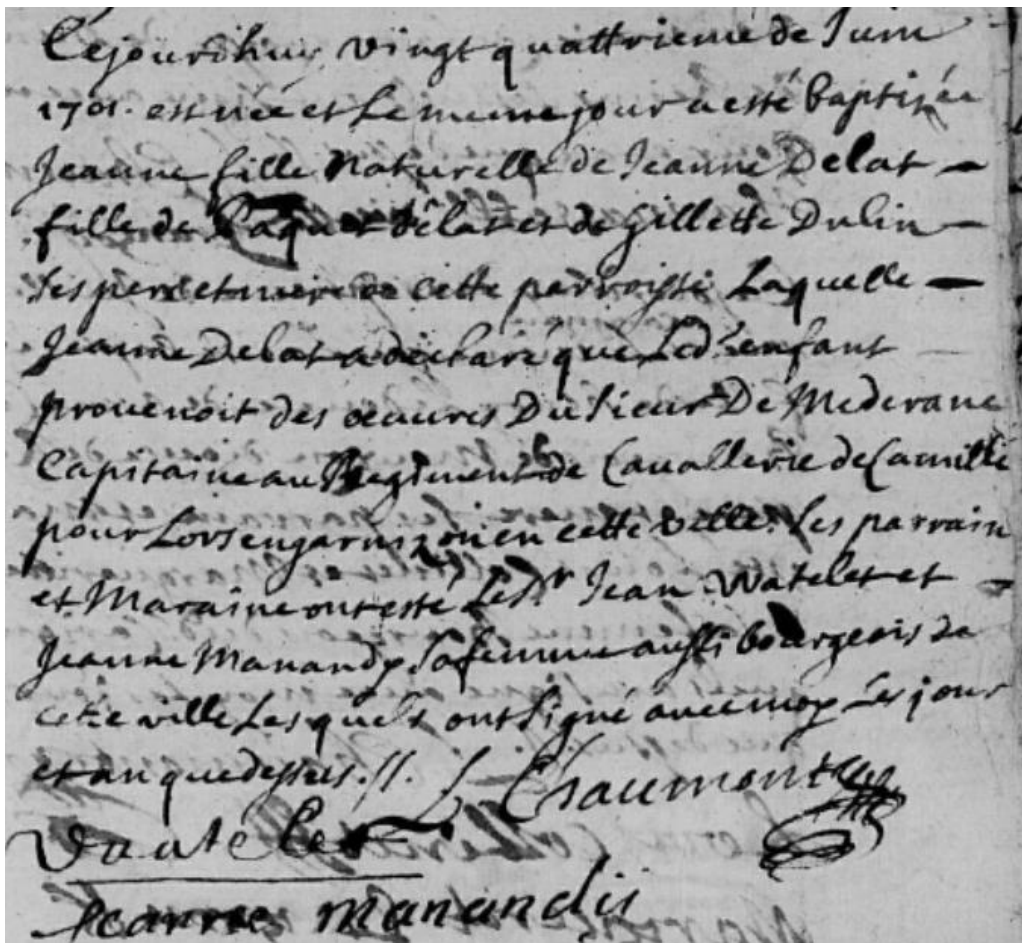 Cejourdhuy vingt quattrieme de Juin
1701. est née et le meme jour a esté baptisée
Jeanne fille Naturelle de Jeanne Delat
fille de Paquet Delat et de Gillette Dulin
ses pere et mere de cette parroisse Laquelle
Jeanne Delat a declaré que Led. enfant
provenoit des oeuvres Du Sieur De Mederane
Capitaine au Regiment de Cavallerie de Camille
pour Lors en garnizon en cette ville. Les parrain
et Maraine ont esté Le Sr Jean Watelet et
Jeanne Manandy sa femme aussi bourgeois de
cette ville Lesquels ont signé avec moy Les jour
et an que dessus. //. Chaumont
Vuatelet
Jeanne manandii